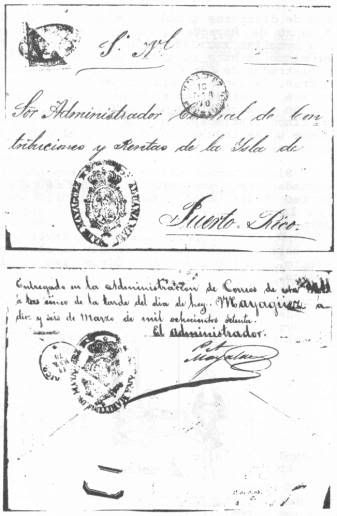 S. N.
Sor Administrador Central de Con
tribuciones y Rentas de la Isla de
Puerto Rico.
ADUANA
MAYAGUEZ
Entregado en la Administracion de Correos de esta
a las cinco de la tarde del dia de hoy. Mayaguez a
diez y seis de Marzo de mil ochocientos setenta.
El administrador.